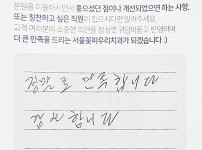 본원을 이용하시면서 좋으셨던 점이나 개선되었으면 하는 사항,
또는 칭찬하고 싶은 직원이 있으시다면 알려주세요.
고객 여러분의 소중한 의견을 정성껏 귀담아듣고 반영하여
더 큰 만족을 드리는 서울꽃피우리치과가 되겠습니다 :)
정말로 만족합니다
감사합니다